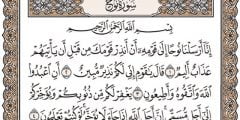 سورة نوح
بسم الله الرحمن الرحيم
إنا أرسلنا نوحا إلى قومه أن أنذر قومك من قبل أن يأتيهم
عذاب أليم ١ قال يقوم إني لكم نذير مبين ٢ أن اعبدوا
الله واتقوه وأطيعون ٣ يغفر لكم من ذنوبكم ويؤخركم
إلى أجل مسمى إن أجل الله إذا جاء لا يؤخر لو كنتم تعلمون ٤